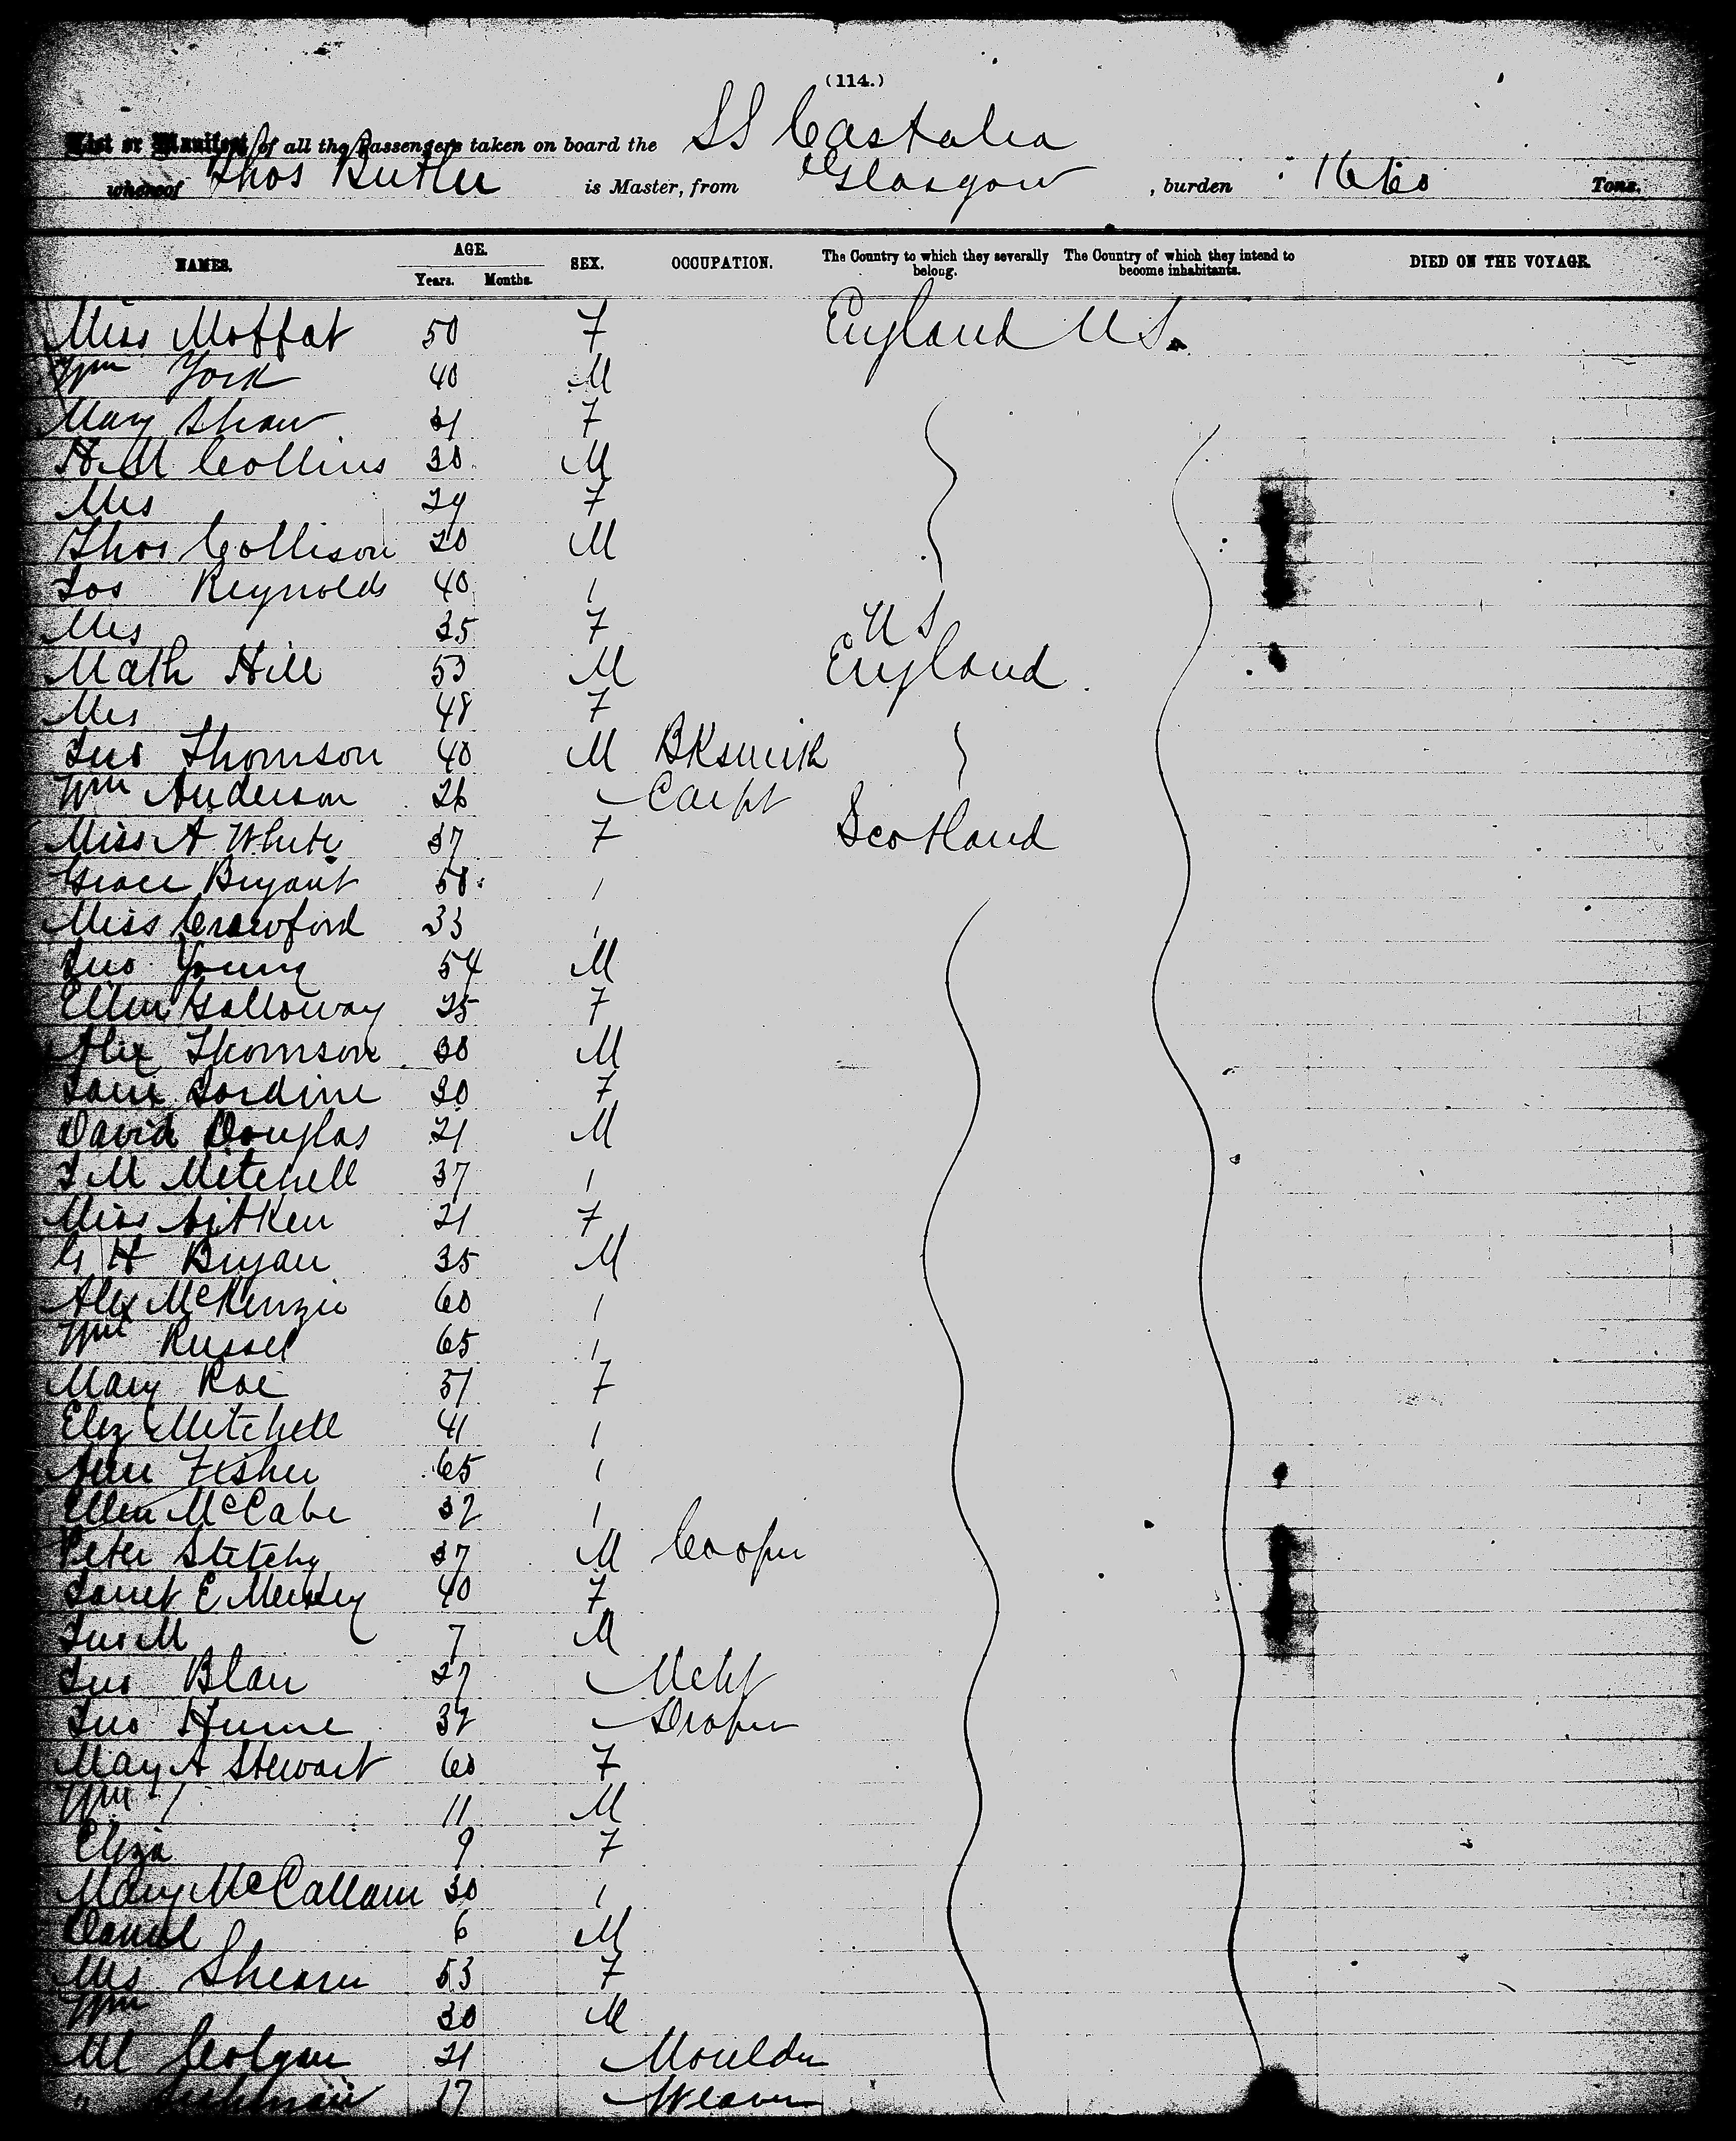 (114.)
List or Manifest of all the Passengers taken on board the SS Castalia
whereof Thos Butler is Master, from Glasgow, burden 1660 Tons.
NAMES. AGE. SEX. OCCUPATION. The Country to which they severally belong. The Country of which they intend to become inhabitants. DIED ON THE VOYAGE.
Years. Months.
Miss Moffat 50 F England U S.
Wm York 40 M
Mary Shaw 31 F
H M Collins 30 M
Mrs 29 F
Thos Collison 20 M
Jos Reynolds 40 /
Mrs 35 F U S
Math Hill 53 M England
Mrs 48 F
Jno Thomson 40 M BKsmith
Wm Anderson 26 Carpt
Miss A White 37 F Scotland
Grace Bryant 50 /
Miss Crawford 33 /
Jno Young 54 M
Ellen Galloway 25 F
Alex Thomson 30 M
Jane Jardine 30 F
David Douglas 21 M
J M Mitchell 37 /
Miss Aitken 21 F
G H Bryan 35 M
Alex McKenzie 60 /
Wm Russel 65 /
Mary Rae 31 F
Eliz Mitchell 41 /
Ann Fisher 65 /
Ellen McCabe 32 /
Peter 37 M Cooper
Janet E 40 F
Jno M 7 M
Jno Blair 27 Mcht
Jno Hume 32 Draper
Mary A Stewart 60 F
Wm / 11 M
Eliza 9 F
Mary McCallum 30 /
Daniel 6 M
Mrs Shearer 53 F
Wm 30 M
Ml Colgan 21 Moulder
" 17 Weaver